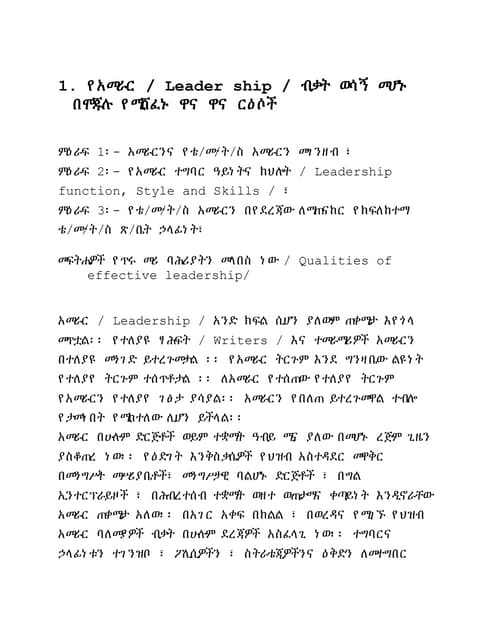 1. የአመራር / Leader ship / ብቃት ወሳኝ መሆኑ
በሞጁሉ የሚሸፈኑ ዋና ዋና ርዕሶች
ምዕራፍ 1፡- አመራርንና የቴ/መ/ት/ስ አመራርን ማንዘብ ፣
ምዕራፍ 2፡- የአመራር ተግባር ዓይነትና ክህሎት / Leadership
function, Style and Skills / ፣
ምዕራፍ 3፡- የቴ/መ/ት/ስ አመራርን በየደረጃው ለማጠናከር የክፍለከተማ
ቴ/መ/ት/ስ ጽ/ቤት ኃላፊነት፣
መፍትሔዎች የጥሩ መሪ ባሕሪያትን መላበስ ነው / Qualities of
effective leadership/
አመራር / Leadership / አንድ ክፍል ሲሆን ያለውም ጠቀሜታ እየጎላ
መጥቷል፡፡ የተለያዩ ፃሕፍት / Writers / እና ተመራማሪዎች አመራርን
በተለያዩ መንገድ ይተረጉሙታል ፡፡ የአመራር ትርጉም እንደ ግንዛቤው ልዩነት
የተለያየ ትርጉም ተሰጥቶታል ፡፡ ለአመራር የተሰጠው የተለያየ ትርጉም
የአመራርን የተለያየ ገፅታ ያሳያል፡፡ አመራርን የበለጠ ይተረጉመዋል ተብሎ
የታመነበት የሚከተለው ሊሆን ይችላል፡፡
አመራር በሁሉም ድርጅቶች ወይም ተቋማት ዓብይ ሚና ያለው በመሆኑ ረጅም ጊዜን
ያስቆጠረ ነው፡፡ የዕድገት እንቅስቃሴዎች የህዝብ አስተዳደር መዋቅር
በመንግሥት መሥሪያቤቶች፣ መንግሥታዊ ባልሆኑ ድርጅቶች ፣ በግል
እንተርፕራይዞች ፣ በሕብረተሰብ ተቋማት ወዘተ ውጤታማና ቀጣይነት እንዲኖራቸው
አመራር ጠቀሜታ አለው፡፡ በአገር አቀፍ በክልል ፣ በወረዳና የሚገኙ የህዝብ
አመራር ባለሙያዎች ብቃት በሁሉም ደረጃዎች አስፈላጊ ነው፡፡ ተግባርና
ኃላፊነቱን ተገንዝቦ ፣ ፖሊሲዎችን ፣ ስትራቴጂዎችንና ዕቅድን ለመተግበር